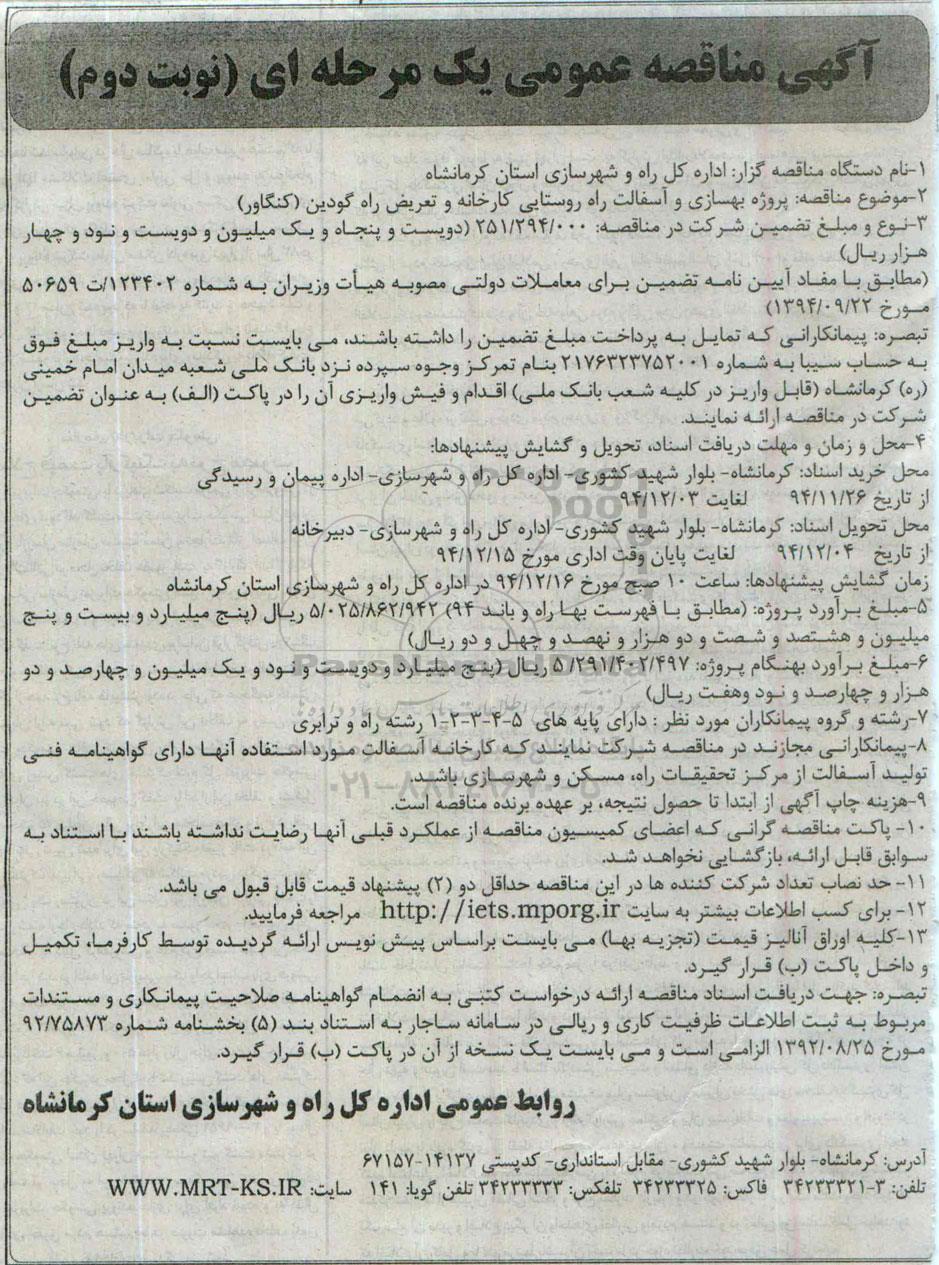 آگهی مناقصه عمومی یک مرحله ای (نوبت دوم)
۱-نام دستگاه مناقصه گزار: اداره کل راه و شهرسازی استان کرمانشاه
۲-موضوع مناقصه: پروژه بهسازی و آسفالت راه روستایی کارخانه و تعریض راه گودین (کنگاور)
۳-نوع و مبلغ تضمین شرکت در مناقصه: ۲۵۱/۲۹۴/۰۰۰ (دویست و پنجاه و یک میلیون و دویست و نود و چهار
هزار ریال)
(مطابق با مفاد آیین نامه تضمین برای معاملات دولتی مصوبه هیأت وزیران به شماره ۱۲۳۴۰۲/ت ۵۰۶۵۹
مورخ ۱۳۹۴/۰۹/۲۲)
تبصره: پیمانکارانی که تمایل به پرداخت مبلغ تضمین را داشته باشند، می بایست نسبت به واریز مبلغ فوق
به حساب سیبا به شماره ۲۱۷۶۳۲۳۷۵۲۰۰۱ بنام تمرکز وجوه سپرده نزد بانک ملی شعبه میدان امام خمینی
(ره) کرمانشاه (قابل واریز در کلیه شعب بانک ملی) اقدام و فیش واریزی آن را در پاکت (الف) به عنوان تضمین
شرکت در مناقصه ارائه نمایند.
۴-محل و زمان و مهلت دریافت اسناد، تحویل و گشایش پیشنهادها:
محل خرید اسناد: کرمانشاه- بلوار شهید کشوری- اداره کل راه و شهرسازی- اداره پیمان و رسیدگی
از تاریخ ۹۴/۱۱/۲۶ لغایت ۹۴/۱۲/۰۳
محل تحویل اسناد: کرمانشاه- بلوار شهید کشوری- اداره کل راه و شهرسازی- دبیرخانه
از تاریخ ۹۴/۱۲/۰۴ لغایت پایان وقت اداری مورخ ۹۴/۱۲/۱۵
زمان گشایش پیشنهادها: ساعت ۱۰ صبح مورخ ۹۴/۱۲/۱۶ در اداره کل راه و شهرسازی استان کرمانشاه
۵-مبلغ برآورد پروژه: (مطابق با فهرست بها راه و باند ۹۴) ۵/۰۲۵/۸۶۲/۹۴۲ ریال (پنج میلیارد و بیست و پنج
میلیون و هشتصد و شصت و دو هزار و نهصد و چهل و دو ریال)
۶-مبلغ برآورد بهنگام پروژه: ۵/۲۹۱/۴۰۲/۴۹۷ ریال (پنج میلیارد و دویست و نود و یک میلیون و چهارصد و دو
هزار و چهارصد و نود وهفت ریال)
۷-رشته و گروه پیمانکاران مورد نظر : دارای پایه های ۵-۴-۳-۲-۱ رشته راه و ترابری
۸-پیمانکارانی مجازند در مناقصه شرکت نمایند که کارخانه آسفالت مورد استفاده آنها دارای گواهینامه فنی
تولید آسفالت از مرکز تحقیقات راه، مسکن و شهرسازی باشد.
۹-هزینه چاپ آگهی از ابتدا تا حصول نتیجه، بر عهده برنده مناقصه است.
۱۰- پاکت مناقصه گرانی که اعضای کمیسیون مناقصه از عملکرد قبلی آنها رضایت نداشته باشند با استناد به
سوابق قابل ارائه، بازگشایی نخواهد شد.
۱۱- حد نصاب تعداد شرکت کننده ها در این مناقصه حداقل دو (۲) پیشنهاد قیمت قابل قبول می باشد.
۱۲- برای کسب اطلاعات بیشتر به سایت http://iets.mporg.ir مراجعه فرمایید.
۱۳-کلیه اوراق آنالیز قیمت (تجزیه بها) می بایست براساس پیش نویس ارائه گردیده توسط کارفرما، تکمیل
و داخل پاکت (ب) قرار گیرد.
تبصره: جهت دریافت اسناد مناقصه ارائه درخواست کتبی به انضمام گواهینامه صلاحیت پیمانکاری و مستندات
مربوط به ثبت اطلاعات ظرفیت کاری و ریالی در سامانه ساجار به استناد بند (۵) بخشنامه شماره ۹۲/۷۵۸۷۳
مورخ ۱۳۹۲/۰۸/۲۵ الزامی است و می بایست یک نسخه از آن در پاکت (ب) قرار گیرد.
روابط عمومی اداره کل راه و شهرسازی استان کرمانشاه
آدرس: کرمانشاه- بلوار شهید کشوری- مقابل استانداری- کدپستی ۱۴۱۳۷-۶۷۱۵۷
تلفن: ۳-۳۴۲۳۳۳۲۱ فاکس: ۳۴۲۳۳۳۲۵ تلفکس: ۳۴۲۳۳۳۳۳ تلفن گویا: ۱۴۱ سایت: WWW.MRT-KS.IR